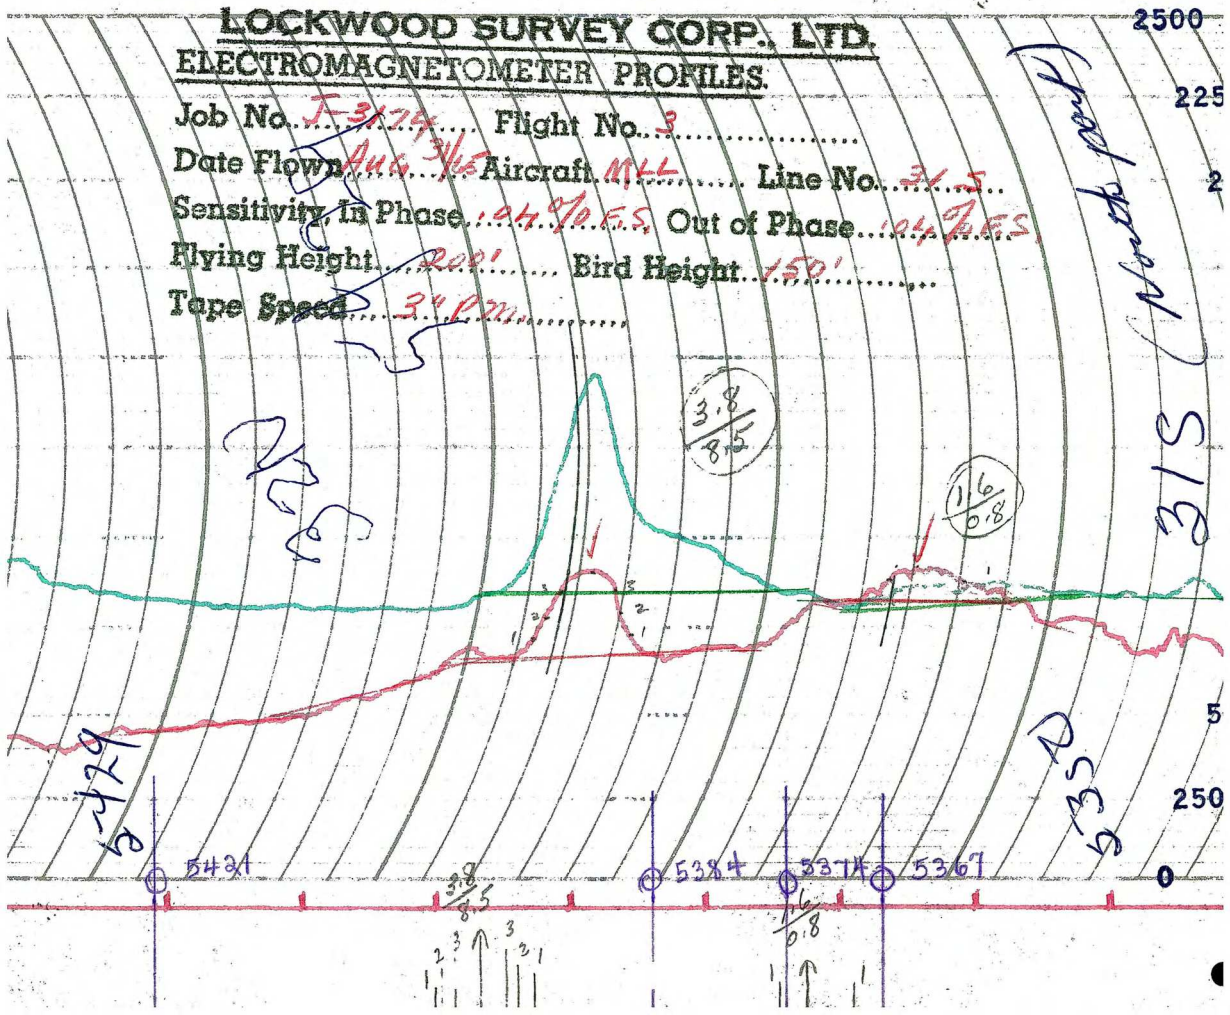 LOCKWOOD SURVEY CORP., LTD.
ELECTROMAGNETOMETER PROFILES.
Job No. J-3174 Flight No. 3
Date Flown Aug 31/65 Aircraft MLL Line No. 31 S
Sensitivity, In Phase .04% F.S. Out of Phase .04% F.S.
Flying Height 200' Bird Height 150'
Tape Speed 3" P.M.
2500
225
2
31S (North part)
3.8
8.5
1.6
0.8
1 2 3 2 1
1
5
250
0
5429
535
5421
5384
5374
5367
3.8
8.5
1.6
0.8
1 2 3 3 2 1
1 1